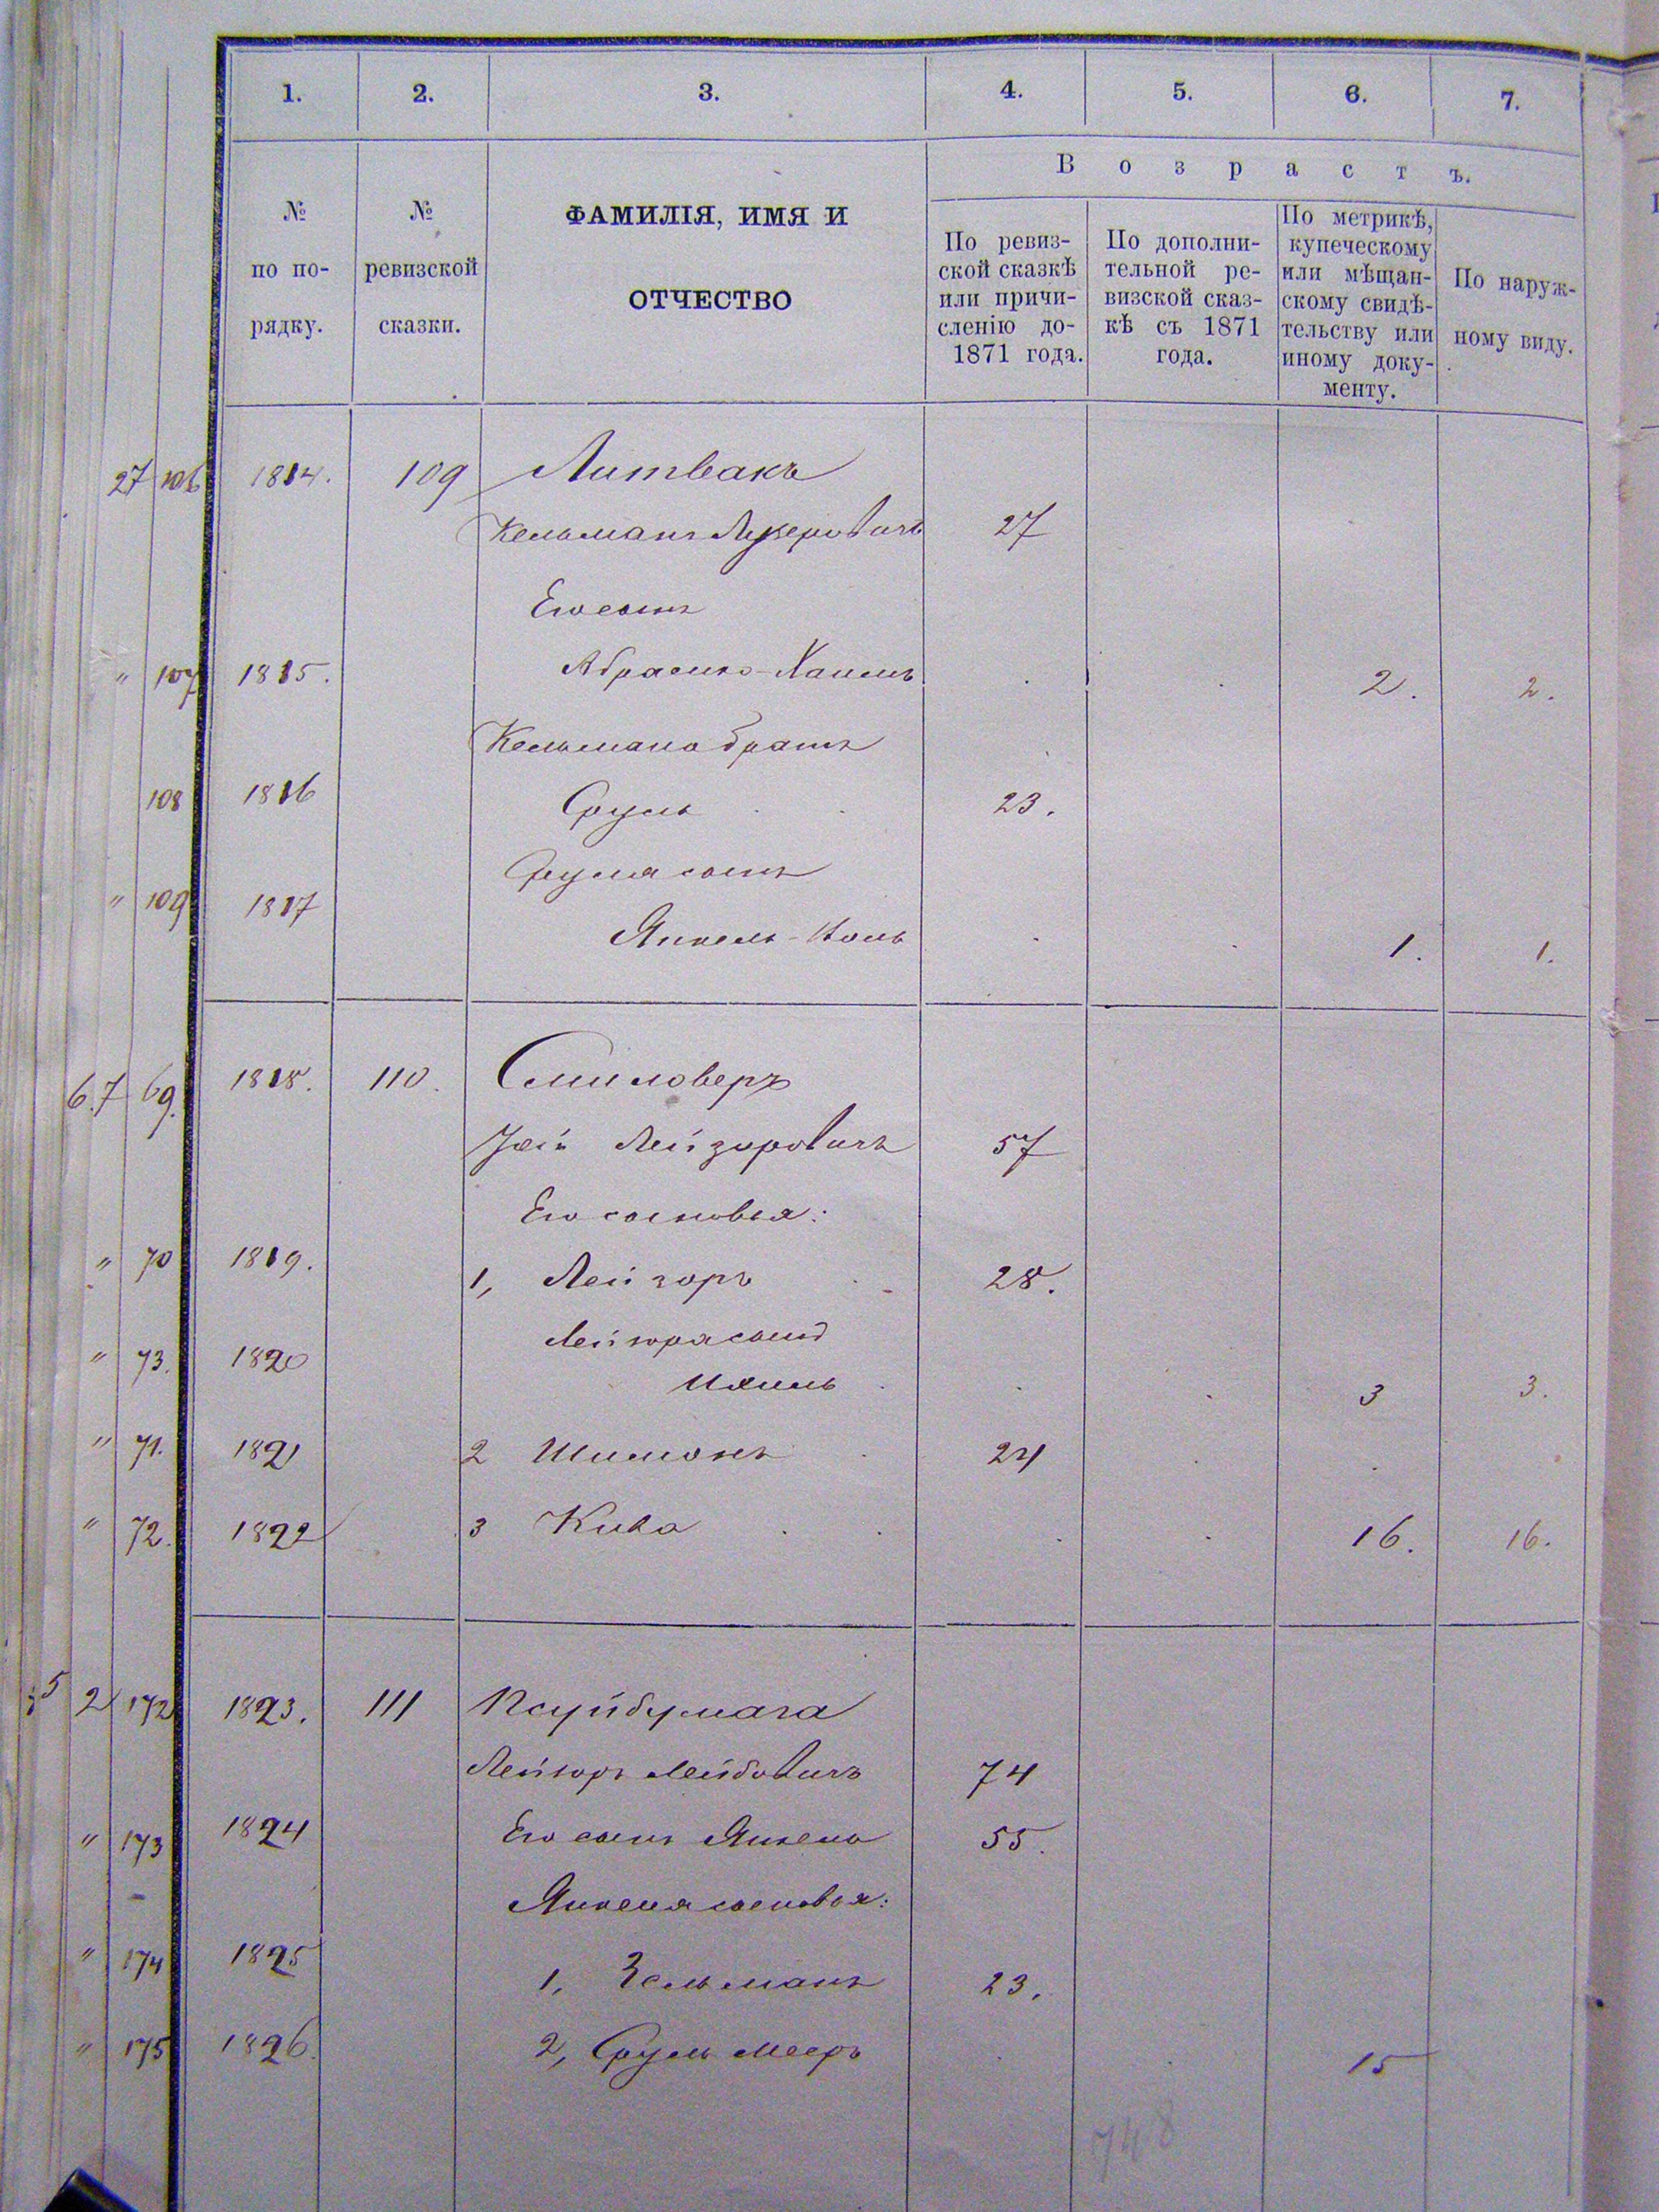 1. 2. 3. 4. 5. 6. 7.
№ по по-рядку.
№ ревизской сказки.
ФАМИЛІЯ, ИМЯ И
ОТЧЕСТВО
Возрастъ.
По ревиз-
ской сказкѣ
или причи-
сленію до-
1871 года.
По дополни-
тельной ре-
визской сказ-
кѣ съ 1871
года.
По метрикѣ,
купеческому
или мѣщан-
скому свидѣ-
тельству или
иному доку-
менту.
По наруж-
ному виду.
27 106 1814. 109 Литвакъ
Кельманъ Лузеровичъ 27
Его сынъ
" 107 1815. Абрамъ-Хаимъ 2. 2.
Кельмана братъ
108 1816 Сруль 23.
Сруля сынъ
" 109 1817 Янкель- 1. 1.
67 69. 1818. 110. Смиловеръ
Лейзоровичъ 57
Его сыновья:
" 70 1819. 1, Лейзоръ 28.
Лейзора сынъ
" 73. 1820 Ихиль 3 3.
" 71. 1821 2 Шимонъ 24
" 72. 1822 3 Кива 16. 16.
5 2 172 1823. 111 Псуйбумага
Лейзоръ Лейбовичъ 74
" 173 1824 Его сынъ Янкель 55.
Янкеля сыновья:
" 174 1825 1, Зельманъ 23.
" 175 1826. 2, Сруль Мееръ 15
748